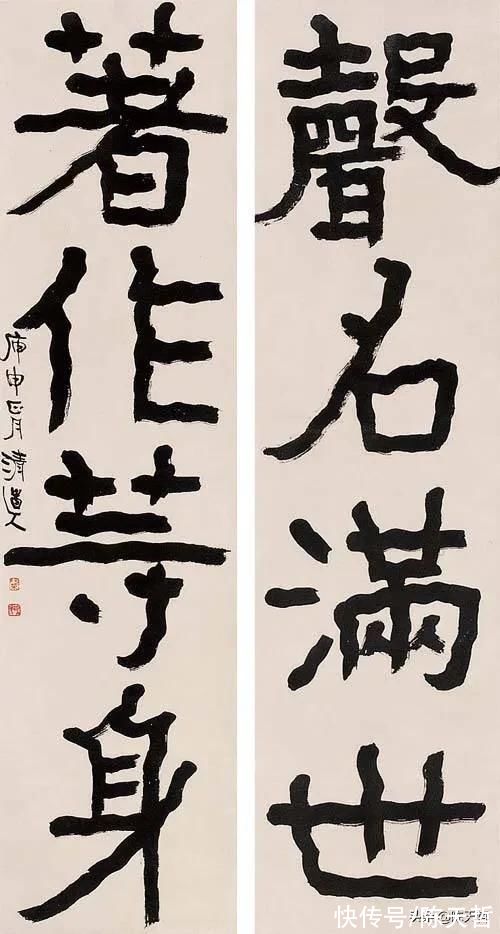 聲名滿世
著作等身
庚申正月清道人
快传号/陈天哲